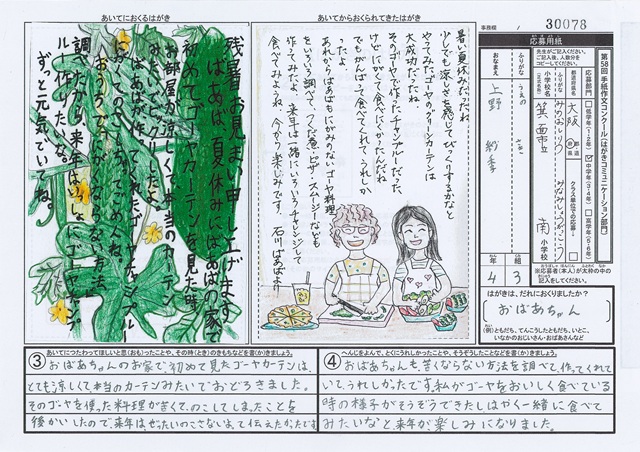 あいてにおくるはがき
残暑お見まい申し上げます
ばあば、夏休みにばあばの家で
初めてゴーヤカーテンを見た時
お部屋が涼しくて本当のカーテン
みたい
調べたから来年はいっしょにゴーヤチャンプル
ル作りたいな。
ずっと元気でいてね。
あいてからおくられてきたはがき
暑い夏休みだったね
少しでも涼しさを感じてびっくりするかなと
やってみたゴーヤのグリーンカーテンは
大成功だったね
そのゴーヤで作ったチャンプルーだった
けどにがくて食べにくかったんだね
でもがんばって食べてくれてうれしか
ったよ
あれからばあばもにがみのないゴーヤ料理
をいろいろ調べて、つくだ煮、ピザ、スムージーなども
作ってみたよ。来年は一緒にいろいろチャレンジして
食べてみようね。今から楽しみです。石川ばあばより
事務欄
30078
応募用紙
先生がご記入ください。
ご記入後、人数分を
コピーしてください。
第58回 手紙作文コンクール(はがきコミュニケーション部門)
応募部門
低学年(1・2年)
中学年(3・4年)
高学年(5・6年)
都道府県名
大阪
都
道
府
県
クラス単位での応募
ふりがな
みのおしりつ みなみしょうがっこう
小学校名
箕面市立 南 小学校
ふりがな
うえの さき
おなまえ
上野 紗季
4年
3組
※応募者(本人)が太枠の中の
記入をしてください。
はがきは、だれにおくりましたか?
おばあちゃん
(例)ともだち、てんこうしたともだち、いとこ、
いなかのおじいさん・おばあさんなど
③ あいてにつたわってほしいと思(おも)ったことや、その時(とき)のきもちなどを書(か)きましょう。
おばあちゃんのお家で初めて見たゴーヤカーテンは、
とても涼しくて本当のカーテンみたいでおどろきました。
そのゴーヤを使った料理が苦くて、のこしてしまったことを
後かいしたので、来年はぜったいのこさないよ。て伝えたかったです
④ へんじをよんで、とくにうれしかったことや、そうぞうしたことなどを書(か)きましょう。
おばあちゃんも、苦くならない方法を調べて、作ってくれて
いてうれしかったです。私がゴーヤをおいしく食べている
時の様子がそうぞうできたしはやく一緒に食べて
みたいなと来年が楽しみになりました。